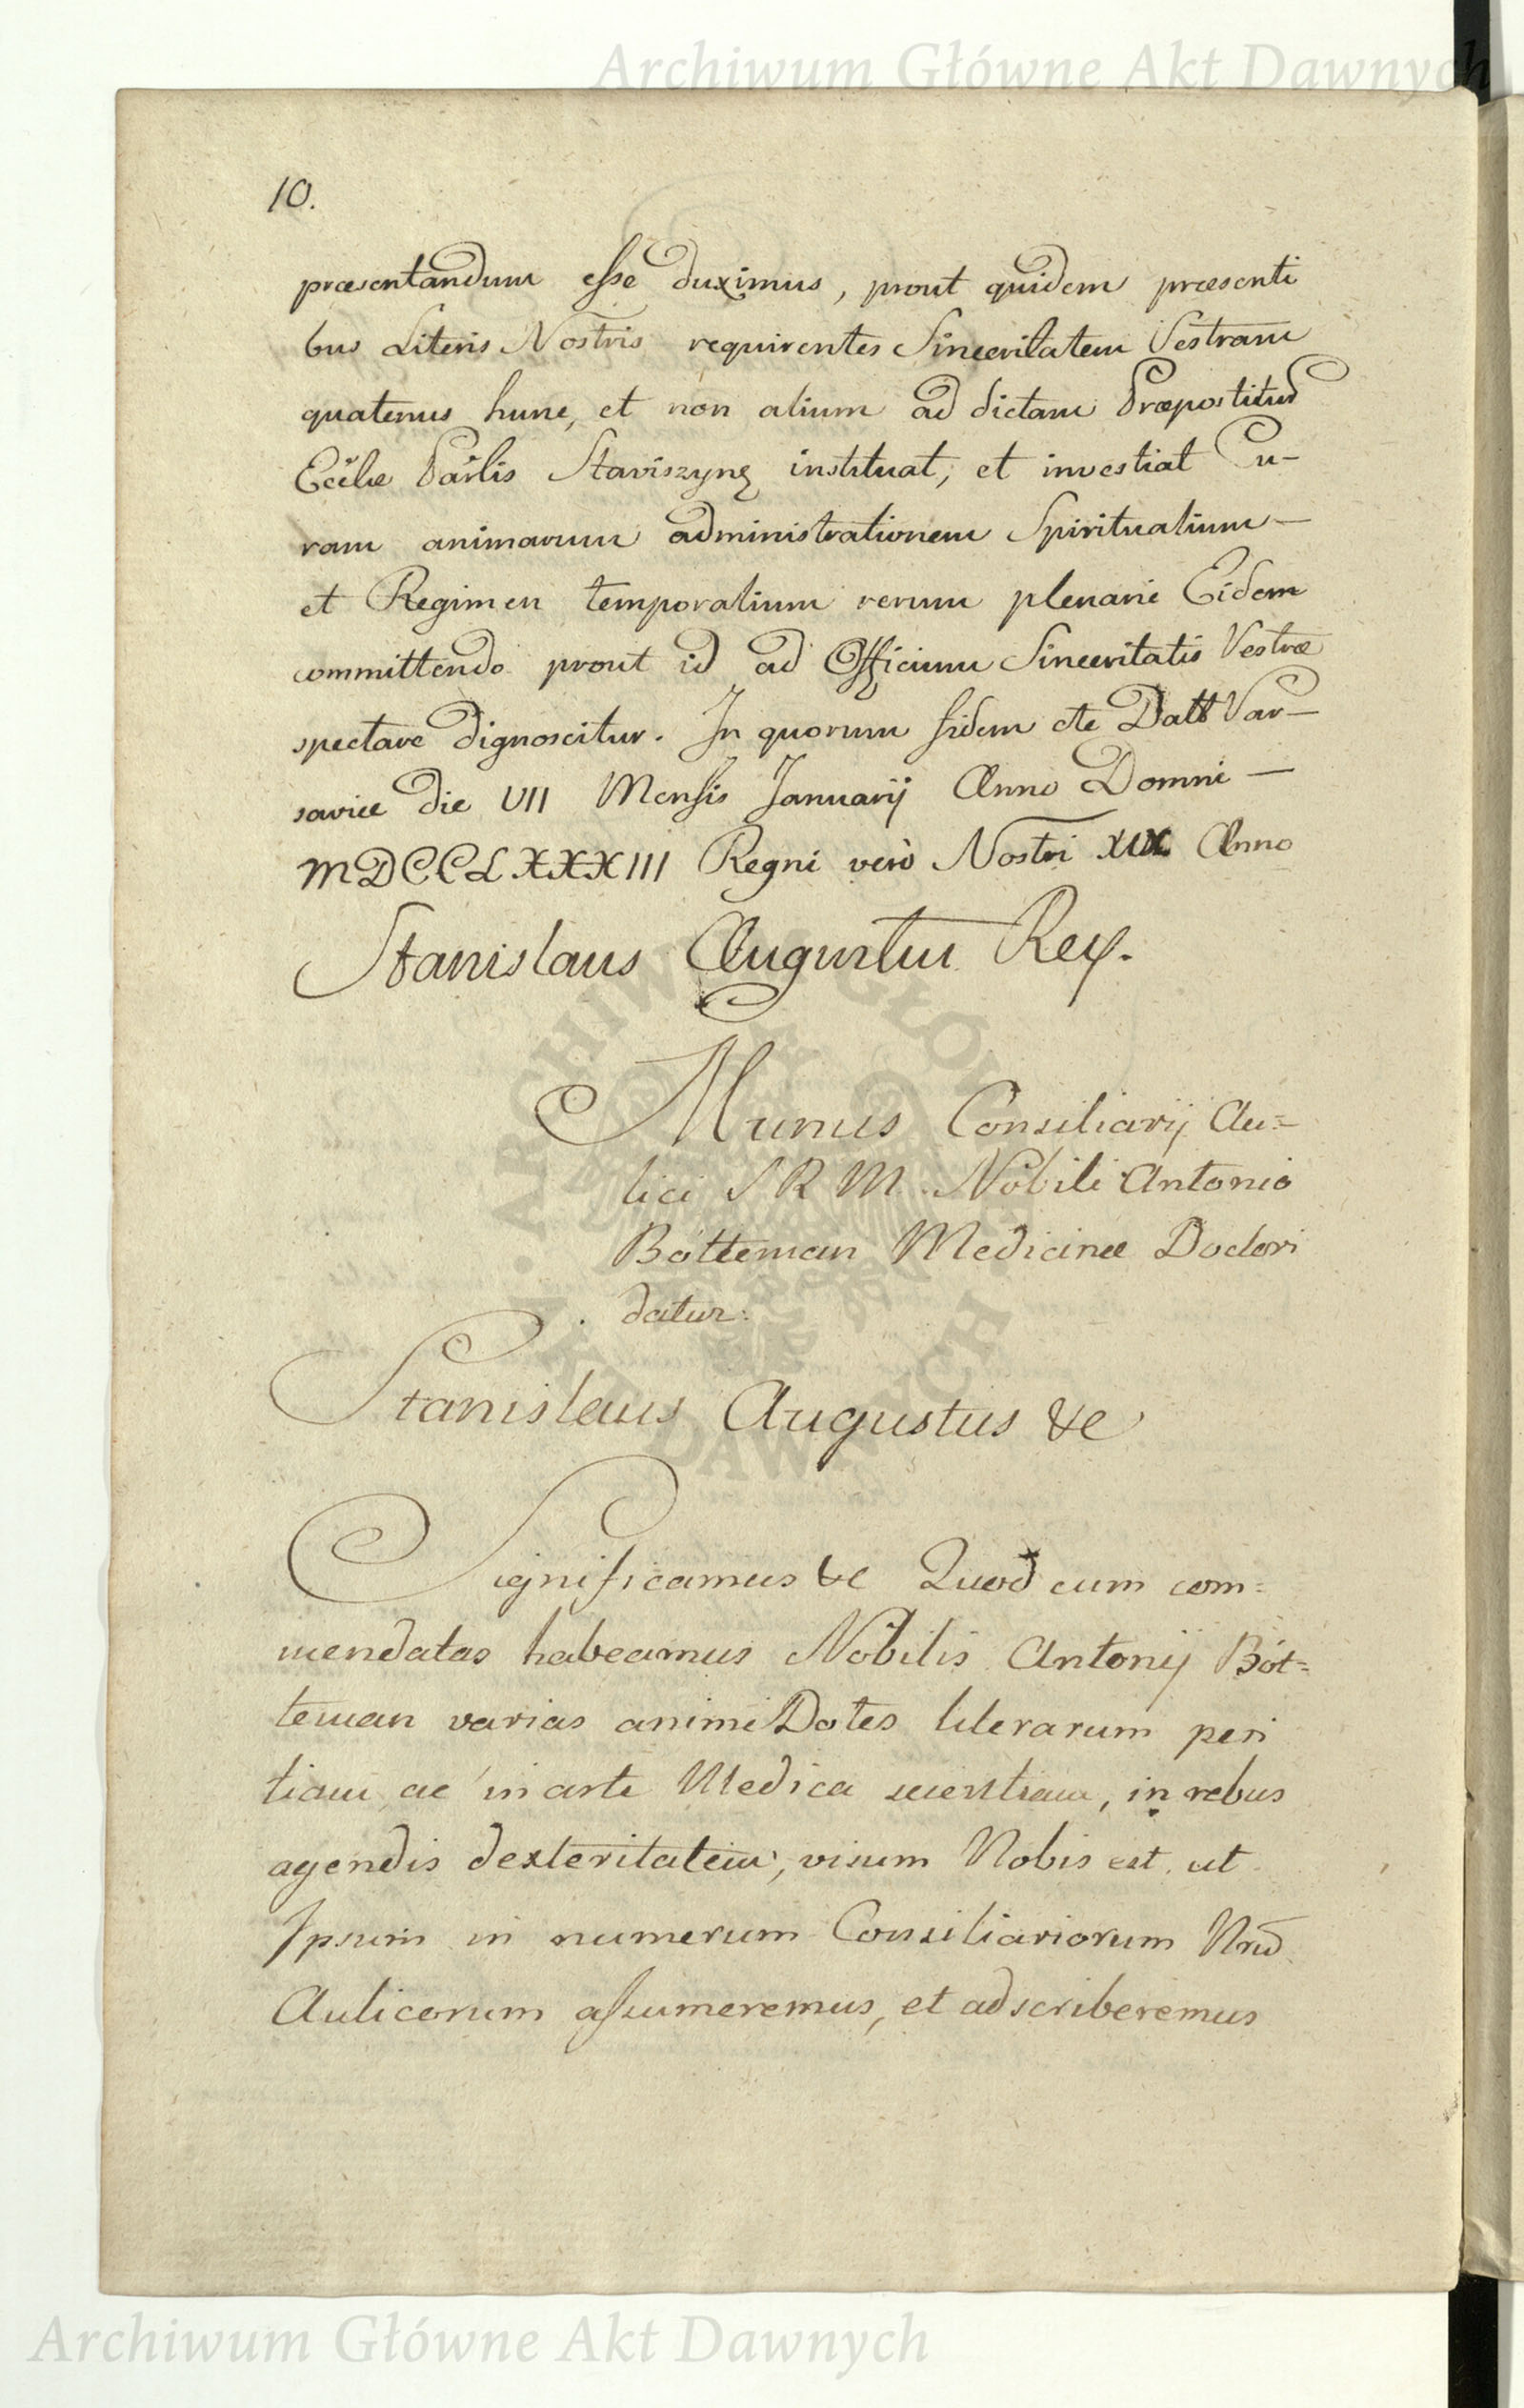 Archiwum Główne Akt Dawnych
10.
præsentandum esse duximus, prout quidem præsenti
bus Literis Nostris requirentes Sinceritatem Vestram
quatenus hunc, et non alium ad dictam Præpostitur̄
Ecc̃liæ Par̃lis Staviszynę instituat, et investiat Cu-
ram animarum administrationem Spiritualium —
et Regimen temporalium rerum plenarie Eidem
committendo prout id ad Officium Sinceritatis Vestræ
spectare dignoscitur. In quorum fidem etc Datt Var-
saviæ die VII Mensis Januarij Anno Domni —
MDCCLXXXIII Regni verò Nostri XIX Anno
Stanislaus Augustus Rex.
Munus Consiliarij Au=
lici S R M Nobili Antonio
Bótteman Medicinæ Doctori
datur.
Stanislaus Augustus &c
Significamus &c Quod cum com=
mendatas habeamus Nobilis Antonij Bót=
teman varias animi Dotes literarum peri
tiam ac in arte Medica scientiam, in rebus
agendis dexteritatem, visum Nobis est, ut
Ipsum in numerum Consiliariorum Nrũ
Aulicorum assumeremus, et adscriberemus
ARCHIWUM GŁÓWNE AKT DAWNYCH
Archiwum Główne Akt Dawnych